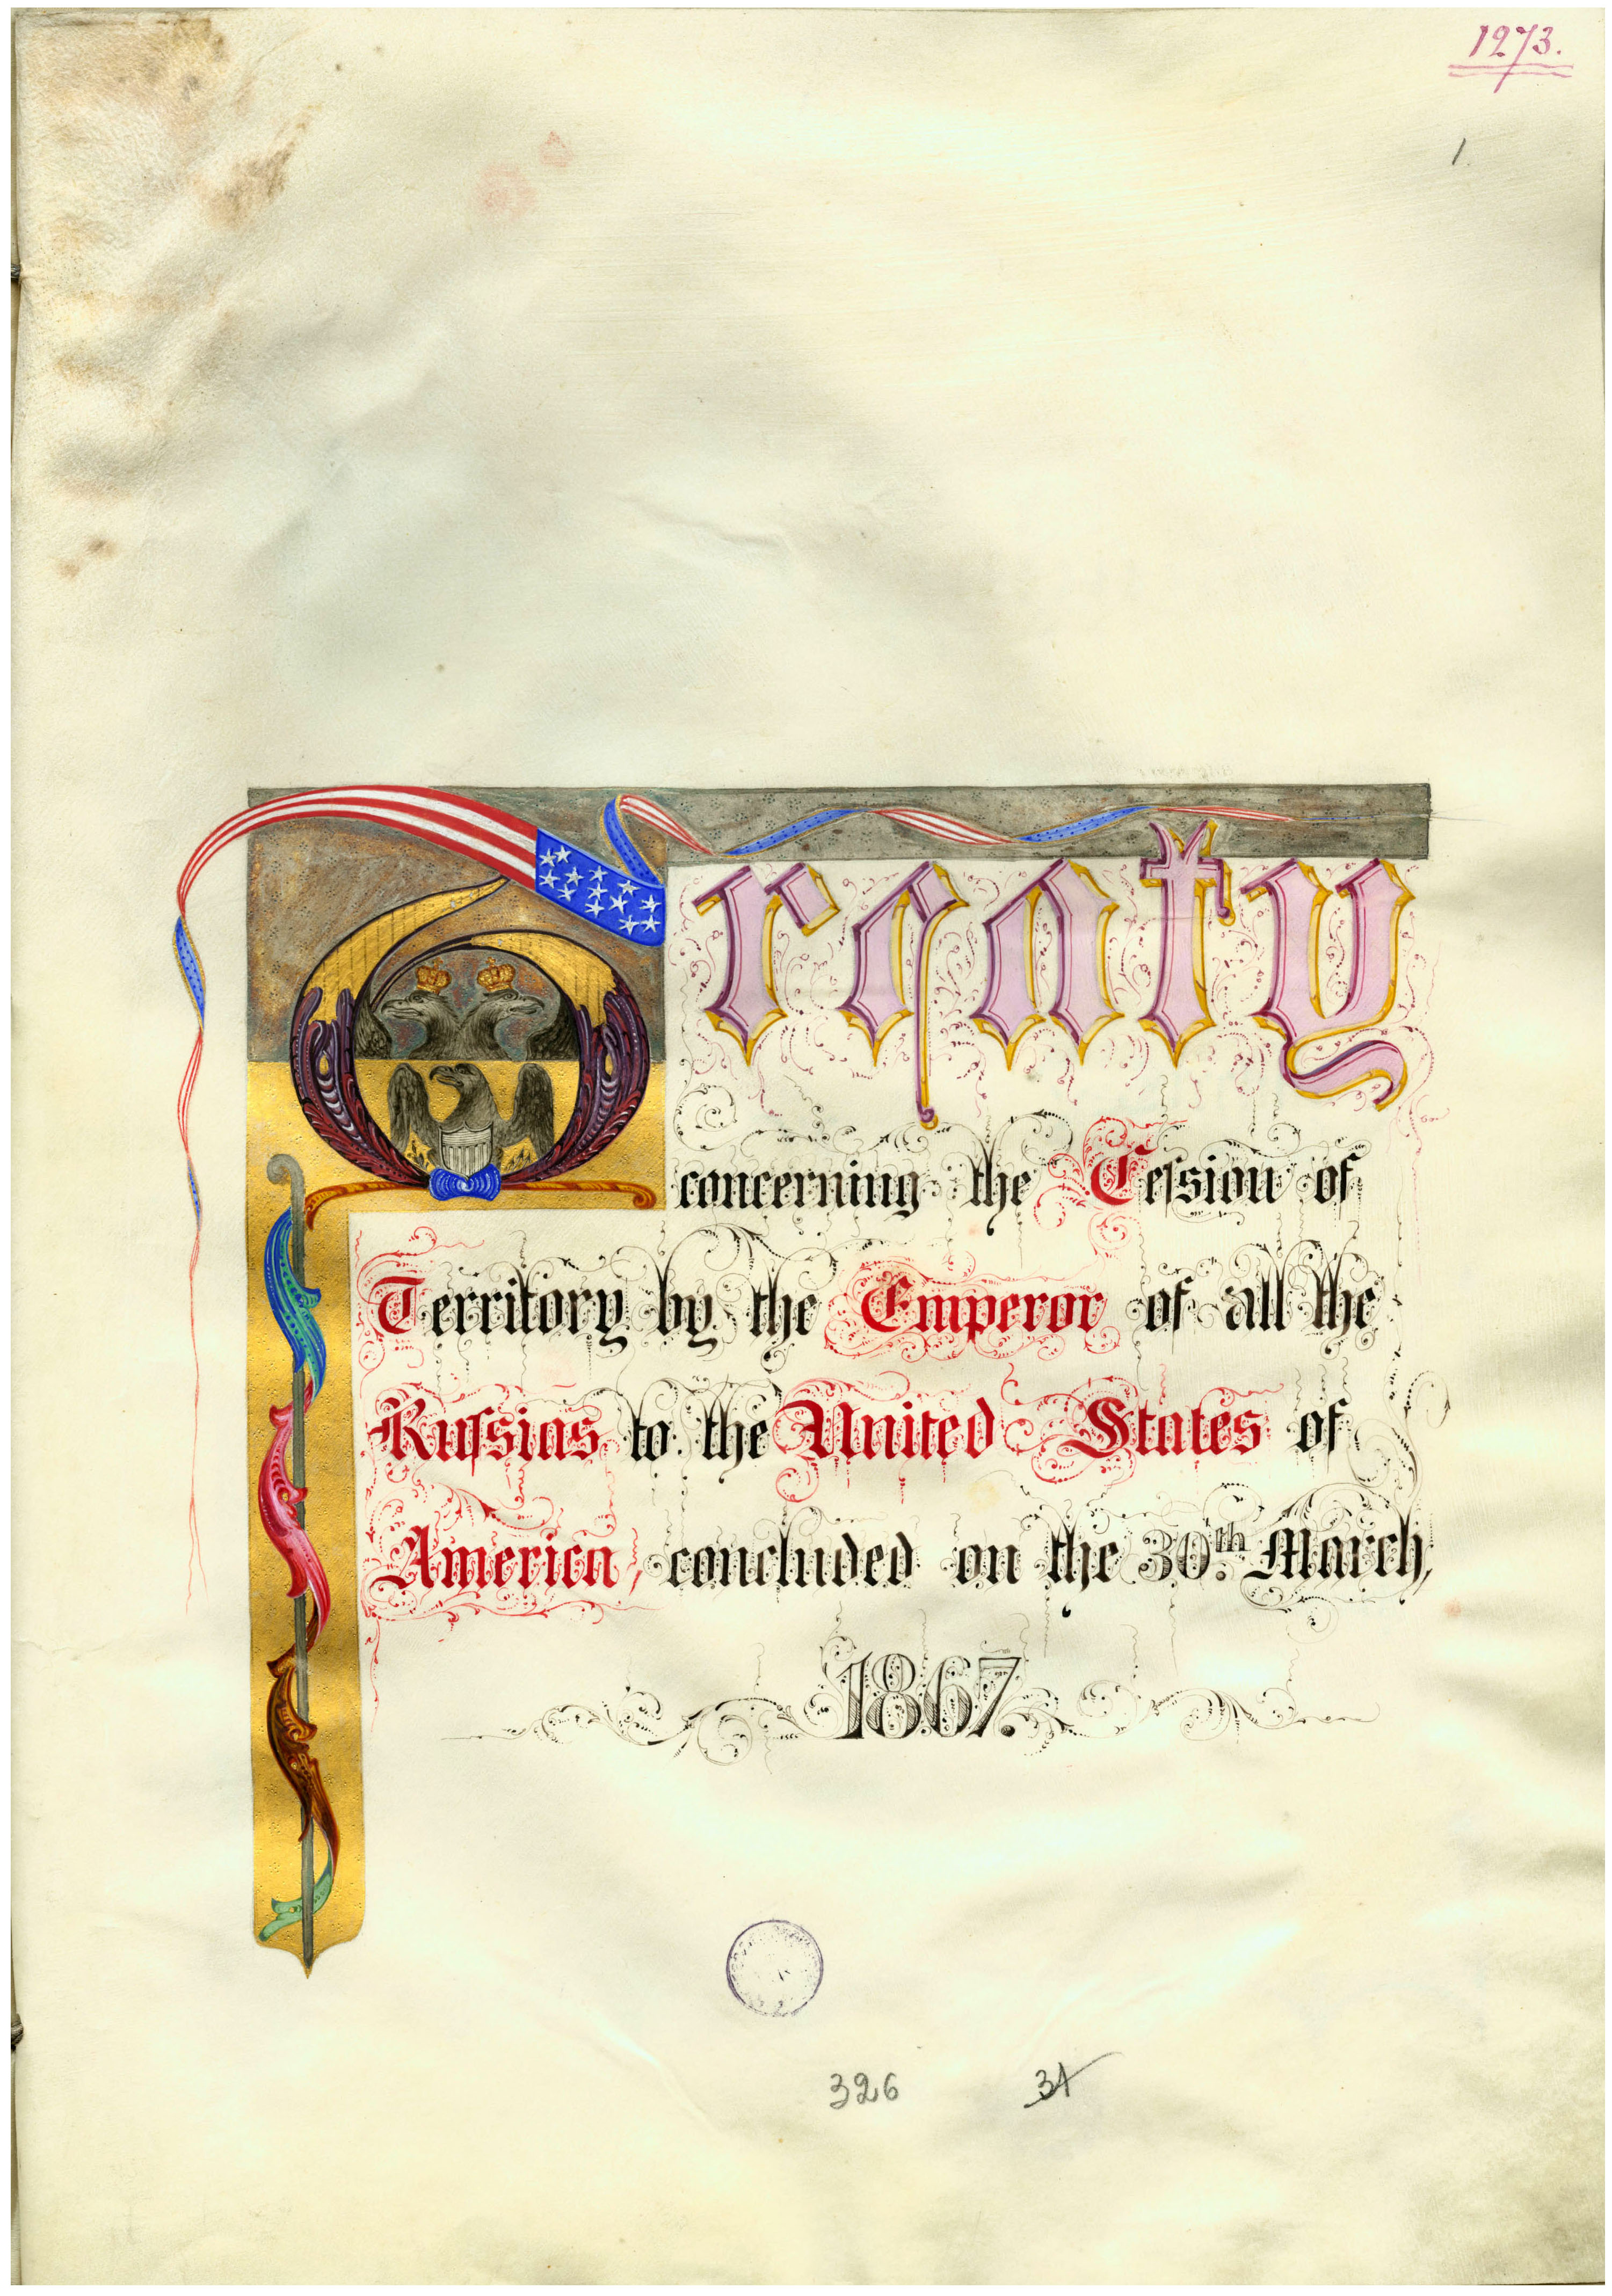 1273.
1
Treaty
concerning the Ceſsion of
Territory by the Emperor of all the
Ruſsias to the United States of
America, concluded on the 30th March,
1867.
326 31